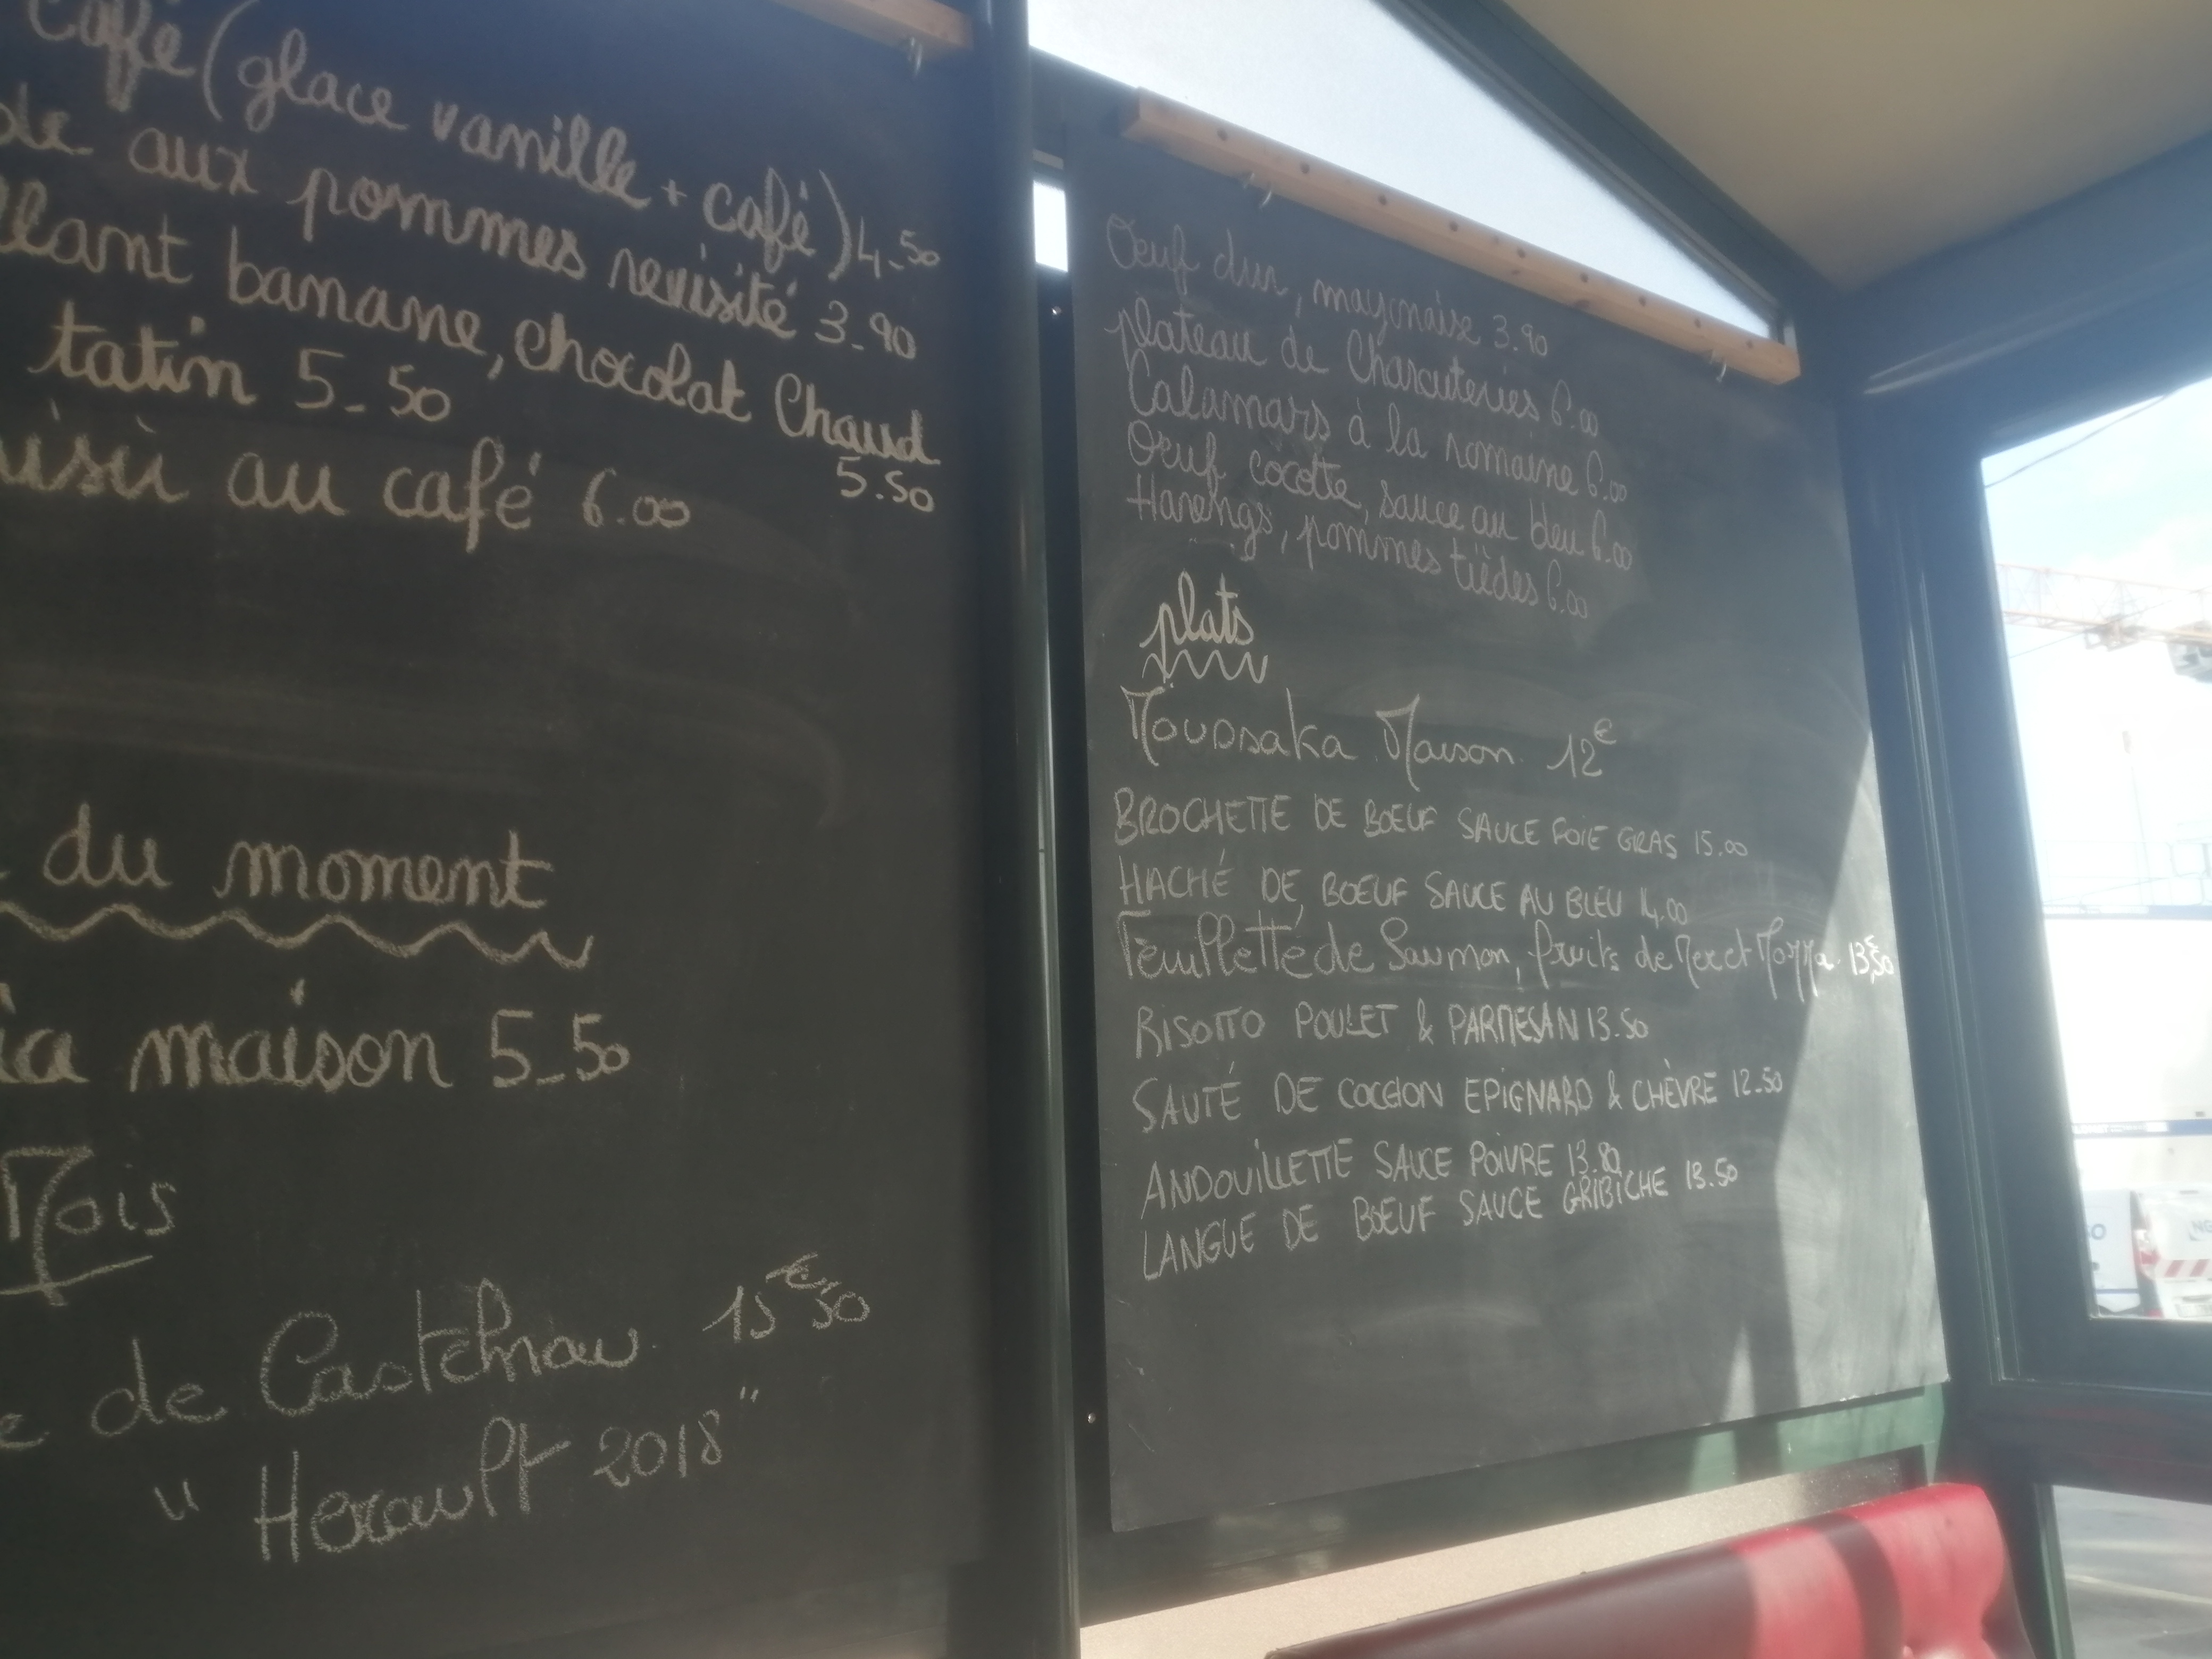 Café (glace vanille + café) 4-50
de aux pommes revisité 3-90
llant banane, chocolat Chaud
5.50
tatin 5-50
isù au café 6.00
du moment
ia maison 5-50
Mois
de Castelnau 15€50
" Herault 2018"
Oeuf dur, mayonaise 3.90
plateau de Charcuteries 6.00
Calamars à la romaine 6.00
Oeuf cocotte, sauce au bleu 6.00
Harengs, pommes tièdes 6.00
plats
Moussaka Maison 12€
BROCHETTE DE BOEUF SAUCE FOIE GRAS 15.00
HACHÉ DE BOEUF SAUCE AU BLEU 14.00
Feuilletté de Saumon, fruits de Mer et Mozza 13€50
RISOTTO POULET & PARMESAN 13.50
SAUTÉ DE COCHON EPIGNARD & CHÈVRE 12-50
ANDOUILLETTE SAUCE POIVRE 13.80
LANGUE DE BOEUF SAUCE GRIBICHE 13.50